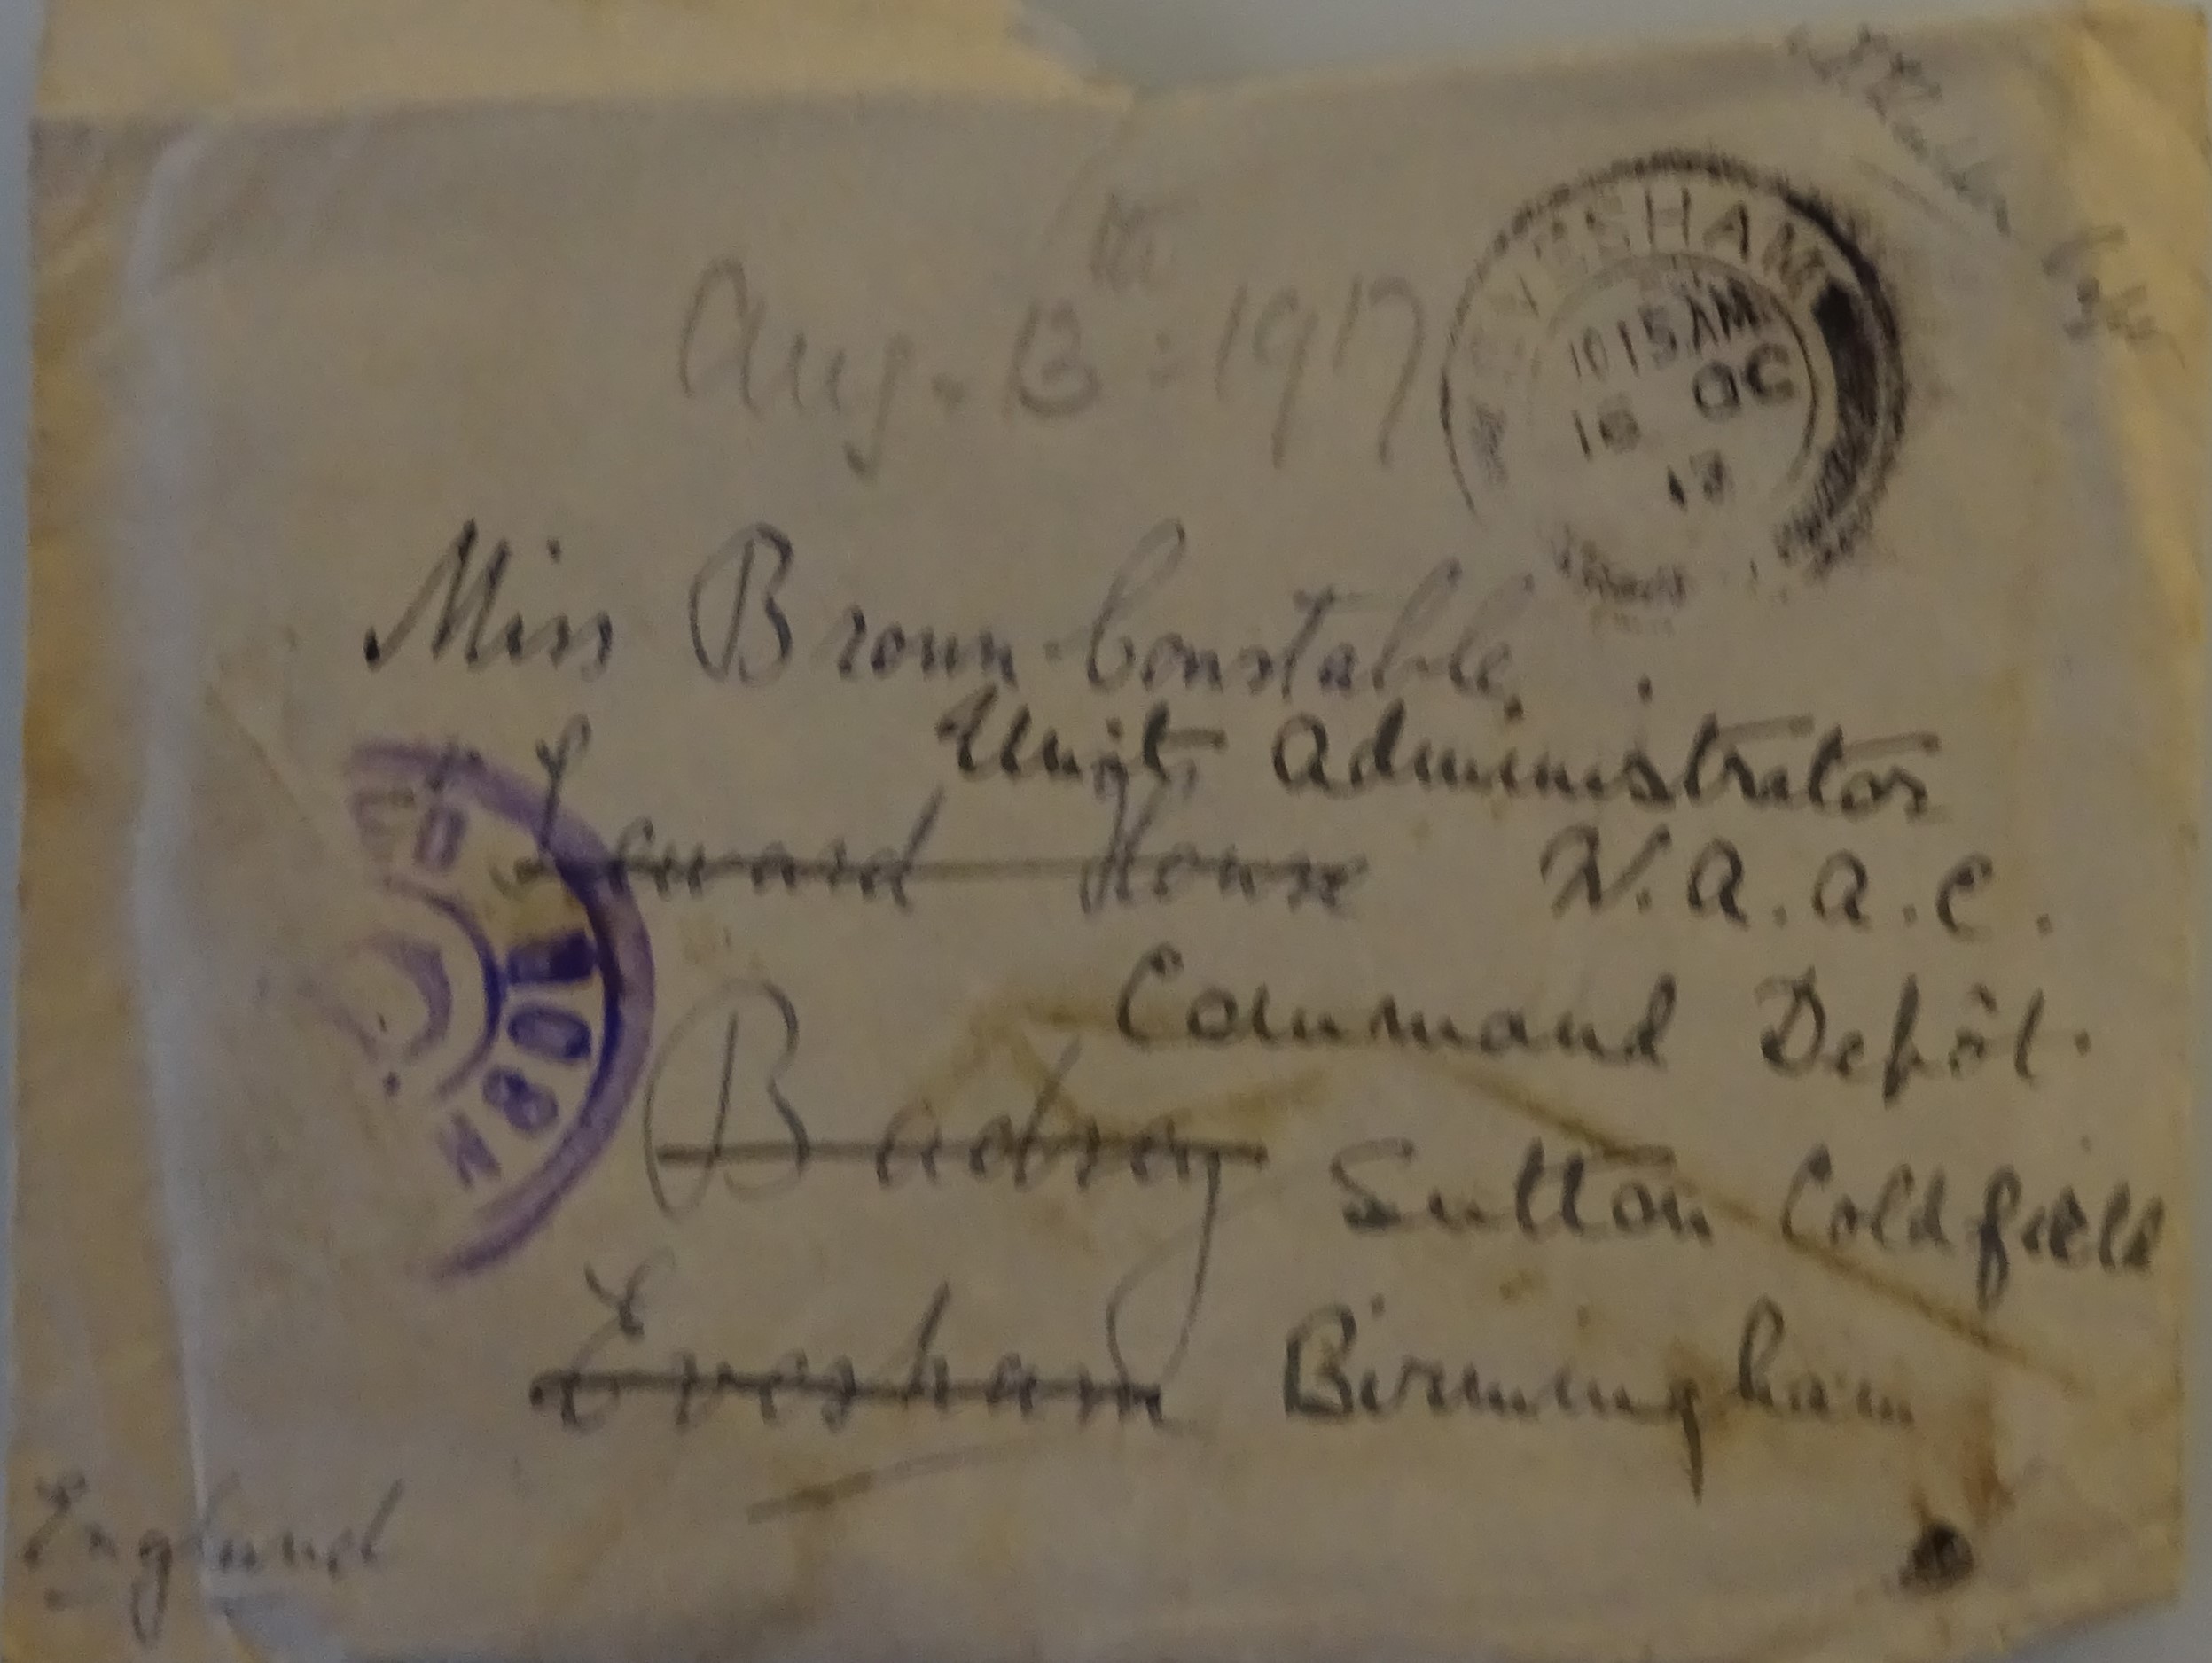 Aug. 13th: 1917
EVESHAM
1015 AM
16 OC
17
Miss Broun-Constable.
Unit Administrator
Seward House
W.A.A.C.
Command Depôt.
Badsey
Sutton Coldfield
Evesham
Birmingham
England